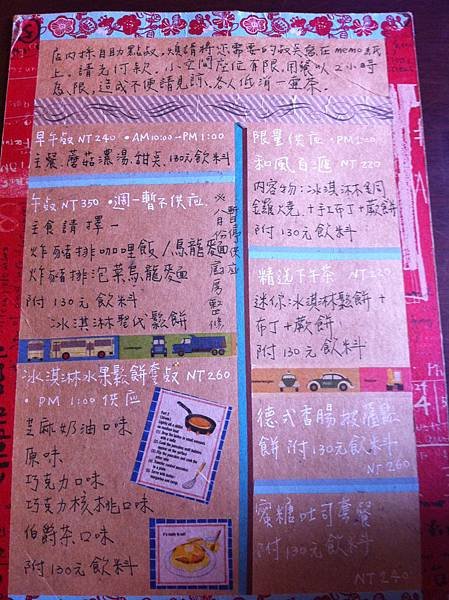 店內採自助點餐,煩請將您需要的餐點寫在memo紙
上。請先付款。小空間座位有限,用餐以2小時
為限,造成不便請見諒。各人低消一壺茶。
早午餐 NT 240 • AM10:00~PM1:00
主餐.蘑菇濃湯.甜點.130元飲料
午餐 NT 350 • 週一暫不供應.
主食請擇一
炸豬排咖哩飯/烏龍麵
炸豬排泡菜烏龍麵
附 130元飲料
冰淇淋聖代鬆餅
冰淇淋水果鬆餅套餐 NT 260
• PM 1:00 供應
芝麻奶油口味
原味
巧克力口味
巧克力核桃口味
伯爵茶口味
附130元飲料
限量供應 • PM1:00
NT 220
內容物:冰淇淋銅
鑼燒.+手工布丁+蕨餅
附 130元飲料
精選下午茶 NT 220
迷你冰淇淋鬆餅+
布丁+蕨餅
附 130元飲料
德式香腸披薩鬆
餅 附130元飲料
NT 260
蜜糖吐司套餐
附130元飲料
NT 240